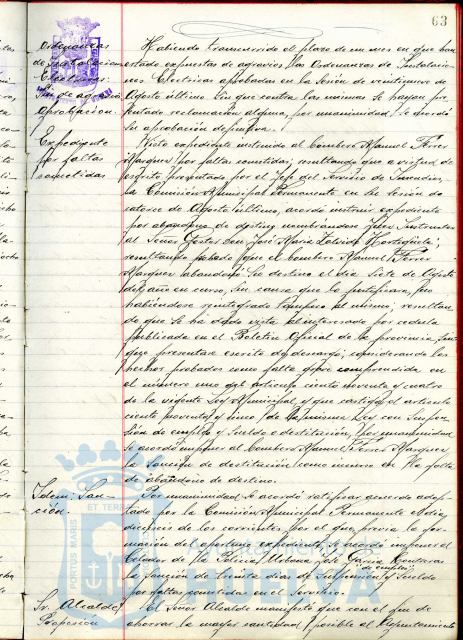 63
Ordenanzas
de Instalaciones
Eléctricas.
Fin de agravios
Aprobación.
Habiendo transcurrido el plazo de un mes en que han
estado expuestas de agravios las Ordenanzas de Instalacio-
nes Eléctricas aprobadas en la sesión de veintinueve de
Agosto último sin que contra las mismas se hayan pre-
sentado reclamación alguna, por unanimidad, se acordó
su aprobación definitiva.
Expediente
por faltas
cometidas
Visto expediente instruido al bombero Manuel Ferrer
Marquez por faltas cometidas; resultando que a virtud de
escrito presentado por el Jefe del Servicio de Incendios,
la Comisión Municipal Permanente en su sesión de
catorce de Agosto último, acordó instruir expediente
por abandono de destino nombrándose Juez Instructor
al Señor Gestor Don José María
resultando probado que el bombero Manuel Ferrer
Marquez abandonó su destino el día siete de Agosto
del año en curso, sin causa que lo justificara, no
habiéndose reintegrado tampoco al mismo; resultan-
do que se ha dado vista al interesado por cédula
publicada en el Boletín Oficial de la provincia sin
que presentase escrito de descargo; considerando los
hechos probados como falta grave comprendida en
el número uno del artículo ciento noventa y cuatro
de la vigente Ley Municipal, y que castiga el artículo
ciento noventa y cinco de la misma Ley con suspen-
sión de empleo y sueldo o destitución, por unanimidad
se acordó imponer al bombero Manuel Ferrer Marquez
la sanción de destitución como incurso en la falta
de abandono de destino.
Idem. San-
ción.
Por unanimidad se acordó ratificar acuerdo adop-
tado por la Comisión Municipal Permanente del día
dieciseis de los corrientes por el que, previa la for-
mación del oportuno expediente, se acordó imponer al
Celador de la Policía Urbana José García Contreras
la sanción de treinta días de suspensión de empleo y sueldo
por faltas cometidas en el Servicio.
Sr. Alcalde
El Señor Alcalde manifestó que con el fin de
ahorrar la mayor cantidad posible el Ayuntamiento
PORTUS MARIS ET TERRAE
Ayuntamiento de
HUELVA